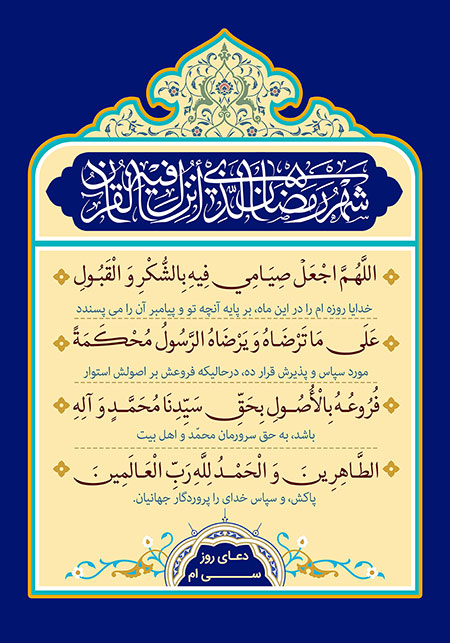 شَهْرُ رَمَضَانَ الَّذِي أُنزِلَ فِيهِ الْقُرْآنُ
اللَّهُمَّ اجْعَلْ صِيَامِي فِيهِ بِالشُّكْرِ وَ الْقَبُولِ
خدایا روزه ام را در این ماه، بر پایه آنچه تو و پیامبر آن را می پسندد
عَلَى مَا تَرْضَاهُ وَ يَرْضَاهُ الرَّسُولُ مُحْكَمَةً
مورد سپاس و پذیرش قرار ده، درحالیکه فروعش بر اصولش استوار
فُرُوعُهُ بِالْأُصُولِ بِحَقِّ سَيِّدِنَا مُحَمَّدٍ وَ آلِهِ
باشد، به حق سرورمان محمّد و اهل بیت
الطَّاهِرِينَ وَ الْحَمْدُ لِلَّهِ رَبِّ الْعَالَمِينَ
پاکش، و سپاس خدای را پروردگار جهانیان.
دعای روز
سی ام